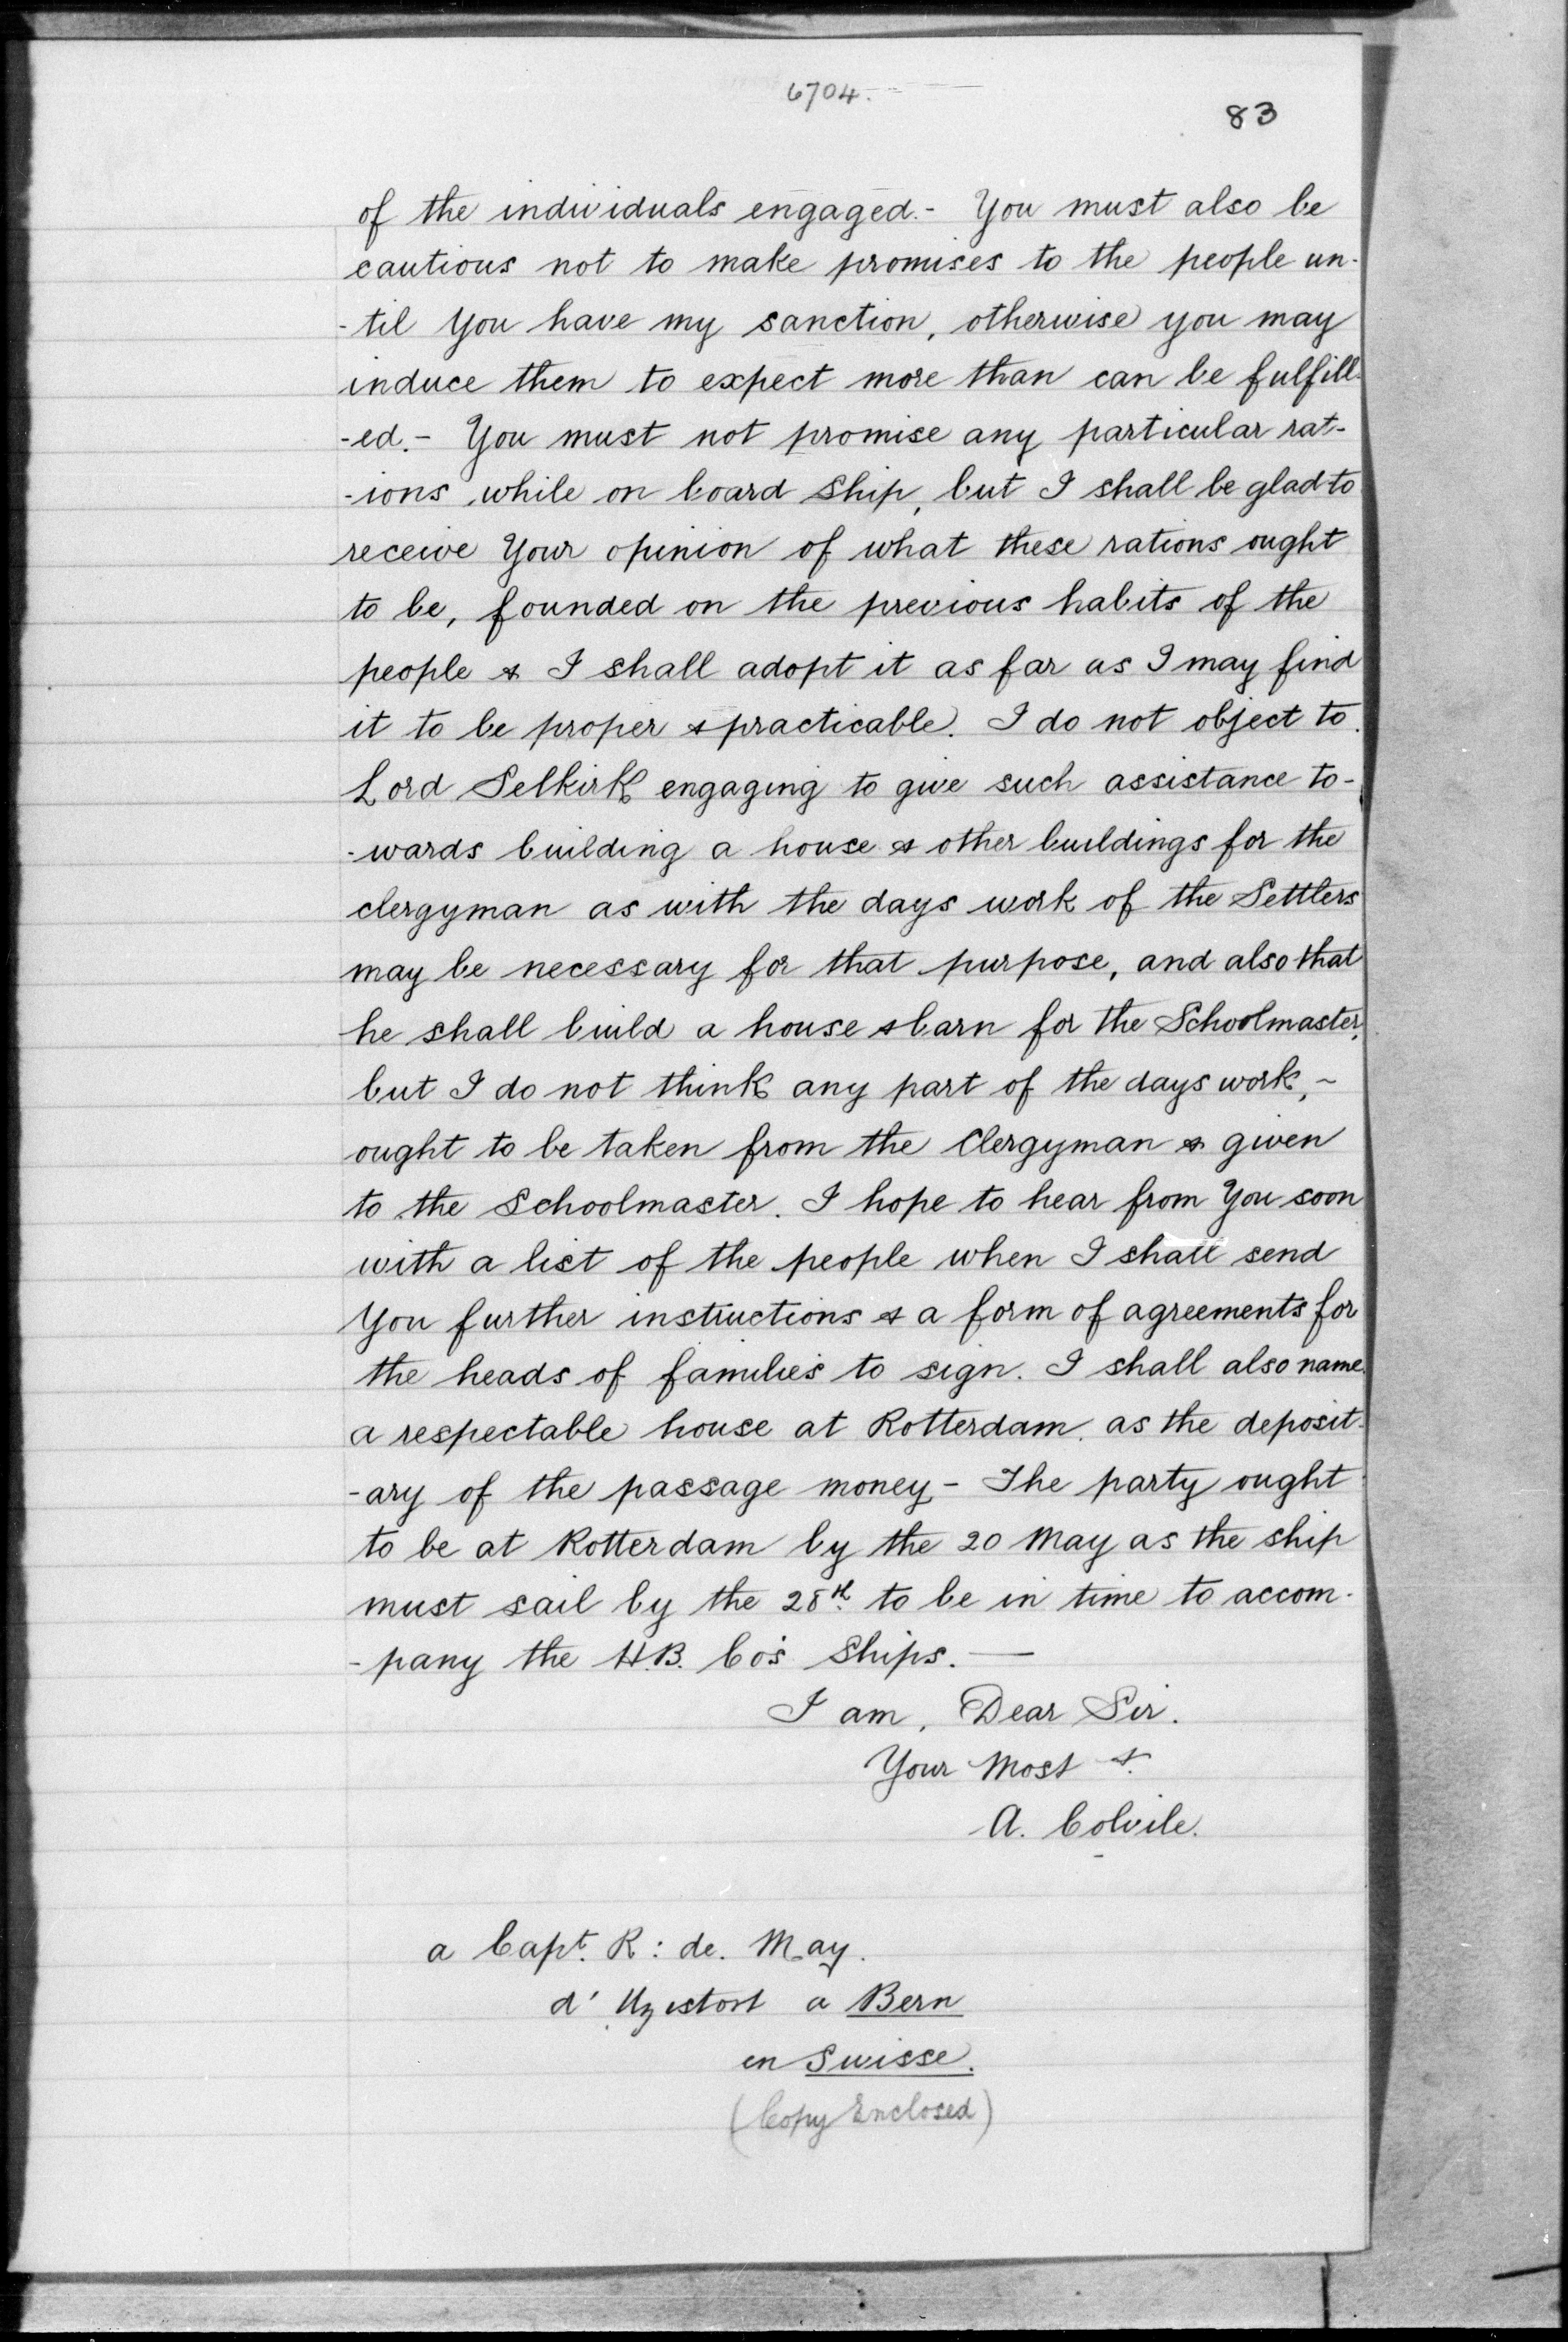 6704.
83
of the individuals engaged.- You must also be
cautious not to make promises to the people un-
-til you have my sanction, otherwise you may
induce them to expect more than can be fulfill-
-ed.- You must not promise any particular rat-
-ions while on board Ship, but I shall be glad to
receive Your opinion of what these rations ought
to be, founded on the previous habits of the
people & I shall adopt it as far as I may find
it to be proper & practicable. I do not object to
Lord Selkirk engaging to give such assistance to-
-wards building a house & other buildings for the
clergyman as with the days work of the Settlers
may be necessary for that purpose, and also that
he shall build a house & barn for the Schoolmaster,
but I do not think any part of the days work, ~
ought to be taken from the Clergyman & given
to the Schoolmaster. I hope to hear from You soon
with a list of the people when I shall send
You further instructions & a form of agreements for
the heads of families to sign. I shall also name
a respectable house at Rotterdam as the deposit-
-ary of the passage money - The party ought
to be at Rotterdam by the 20 May as the ship
must sail by the 28th to be in time to accom-
-pany the H.B. Co's Ships. —
I am, Dear Sir.
Your Most &.
A. Colvile.
a Capt. R: de. May.
d' Uzistorf a Bern
en Suisse.
(Copy Enclosed)